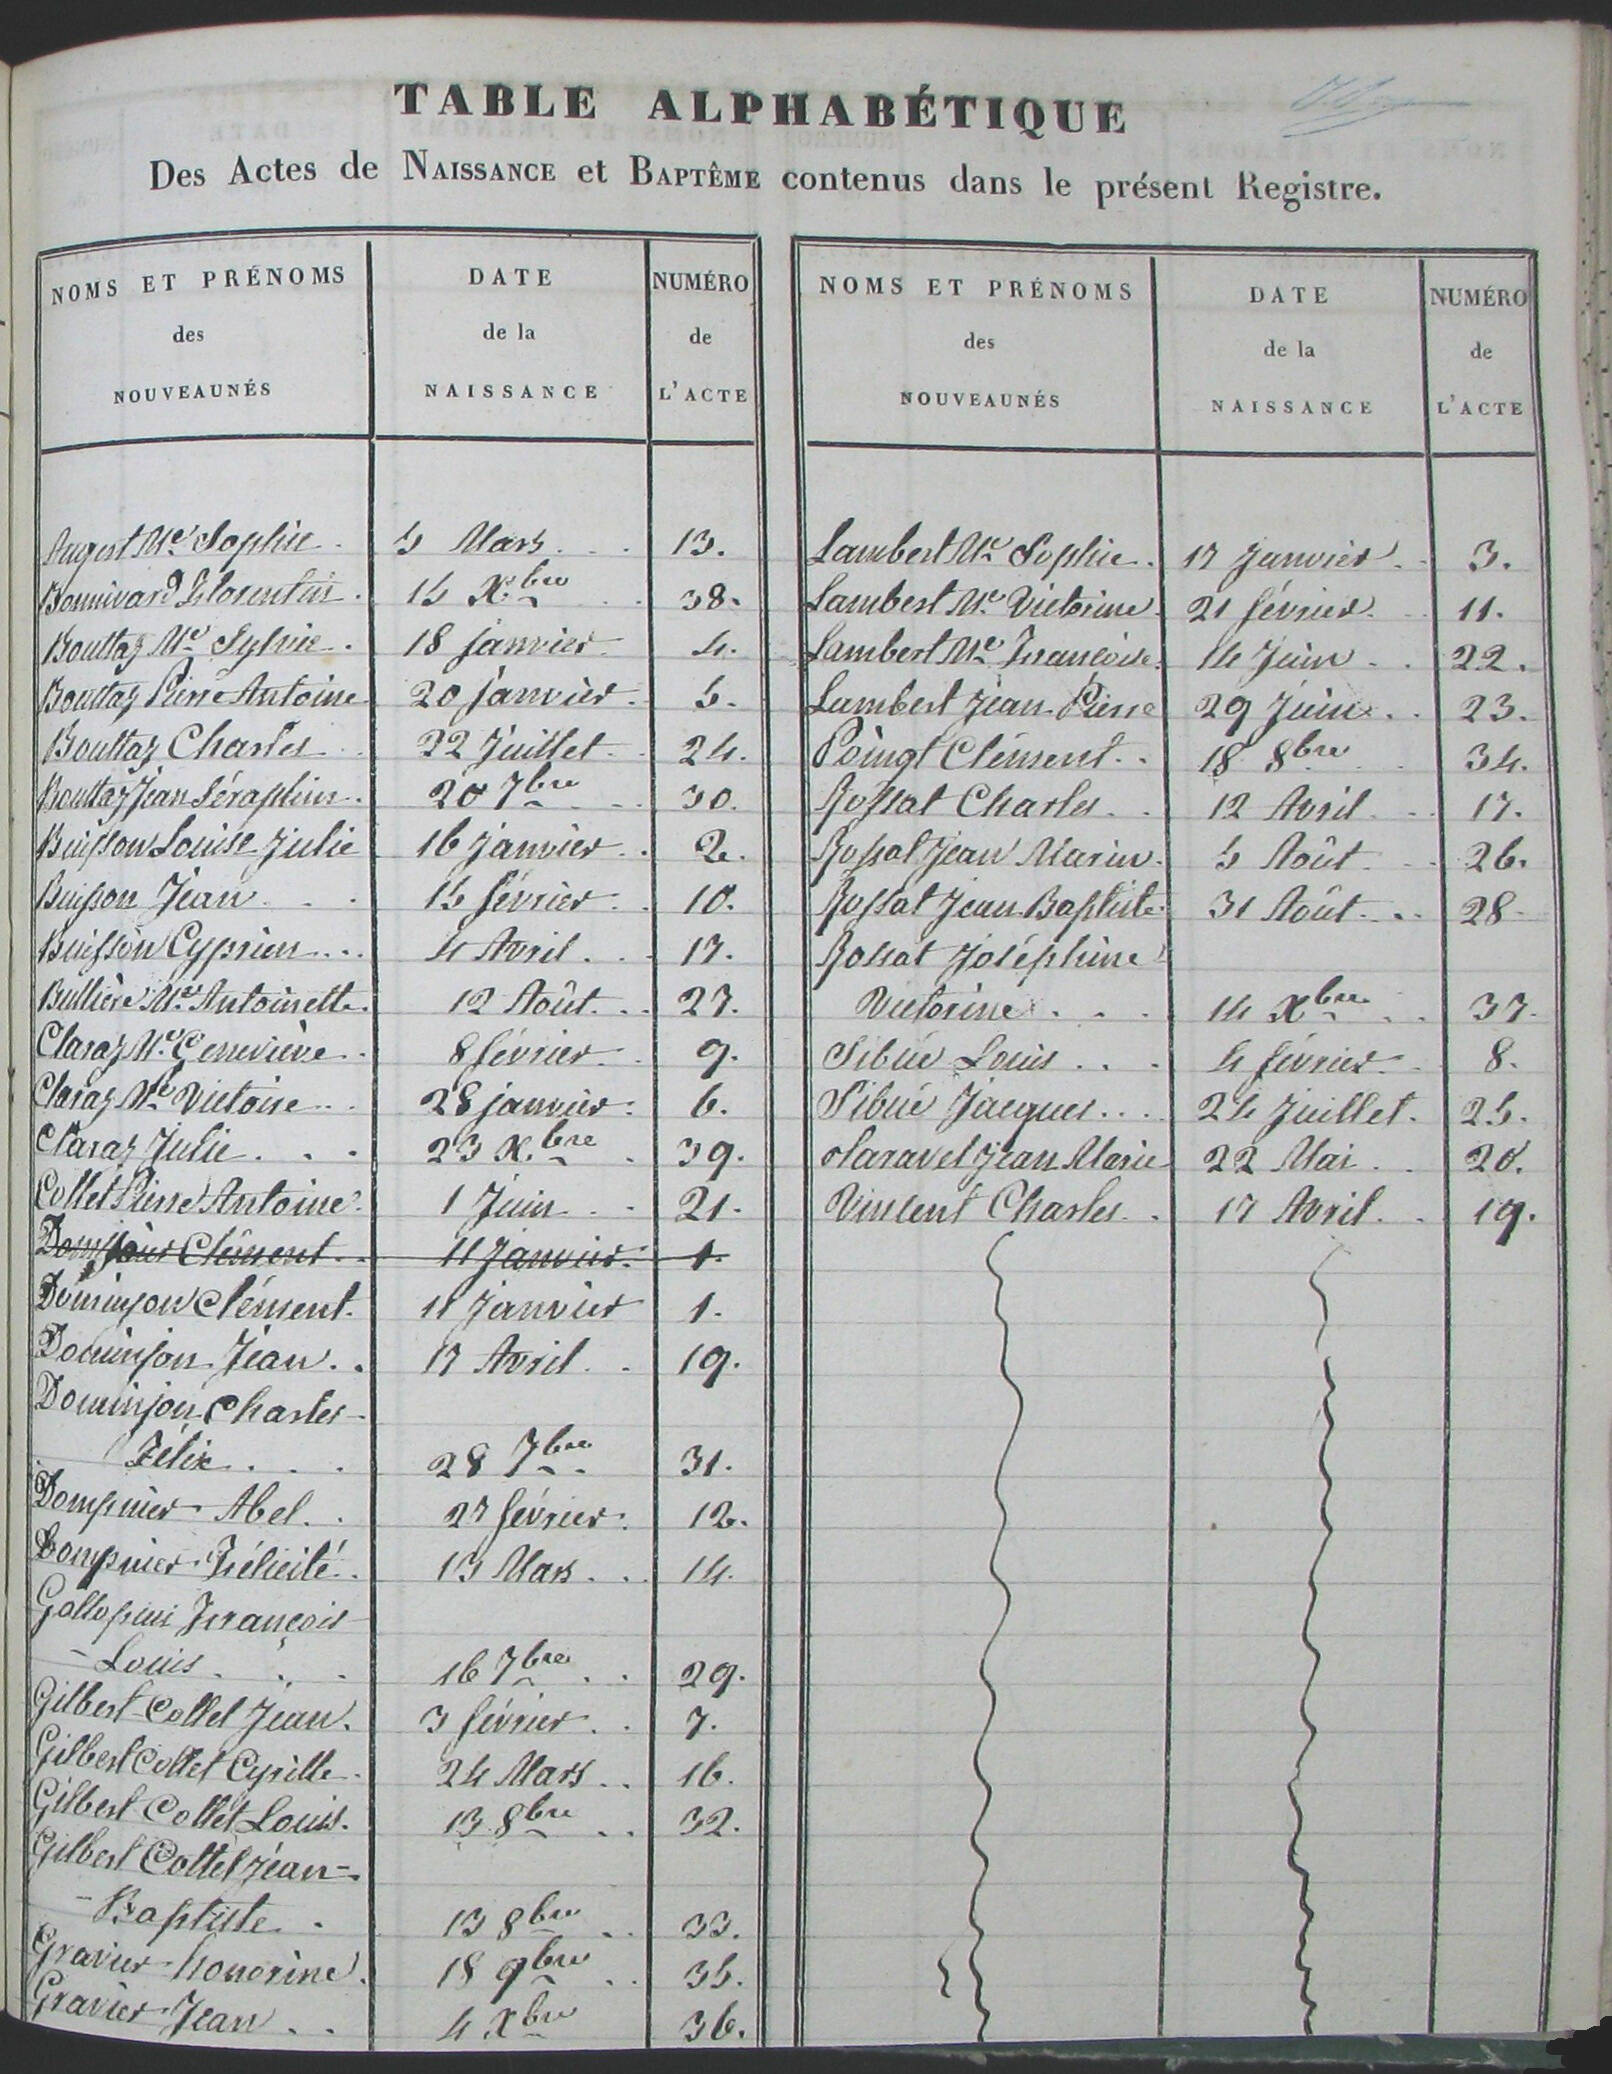 TABLE ALPHABÉTIQUE
Des Actes de NAISSANCE et BAPTÊME contenus dans le présent Registre.
NOMS ET PRÉNOMS des NOUVEAUNÉS
DATE de la NAISSANCE
NUMÉRO de L'ACTE
Augert Me. Sophie. 5 Mars... 13.
Bonnivard Florentin. 15 Xbre.. 38.
Bouttaz Me. Sylvie.. 18 janvier. 4.
Bouttaz Pierre Antoine 20 janvier. 5.
Bouttaz Charles.. 22 Juillet.. 24.
Bouttaz Jean Séraphin. 20 7bre... 30.
Buisson Louise Julie 16 janvier.. 2.
Buisson Jean... 15 février.. 10.
Buisson Cyprien... 4 Avril... 17.
Bullière Me. Antoinette. 12 Août... 27.
Claraz Me. Geneviève.. 8 février.. 9.
Claraz Me. Victoire... 28 janvier. 6.
Claraz Julie... 23 Xbre. 39.
Collet Pierre Antoine. 1 Juin.. 21.
Clément.. 11 Janvier. 1.
Dominjon Clément. 11 Janvier 1.
Dominjon Jean.. 17 Avril.. 19.
Dominjon Charles-
Félix... 28 7bre.. 31.
Dompnier Abel.. 27 février. 12.
Dompnier Félicité. 13 Mars... 14.
Gallopini François
- Louis... 16 7bre.. 29.
Gilbert-Collet Jean. 3 février.. 7.
Gilbert Collet Cyrille. 24 Mars.. 16.
Gilbert Collet Louis. 13 8bre.. 32.
Gilbert Collet Jean-
- Baptiste. 13 8bre.. 33.
Gravier honorine. 18 9bre.. 35.
Gravier Jean.. 4 Xbre 36.
NOMS ET PRÉNOMS des NOUVEAUNÉS
DATE de la NAISSANCE
NUMÉRO de L'ACTE
Lambert Me. Sophie. 17 Janvier.. 3.
Lambert Me. Victorine. 21 février.. 11.
Lambert Me. Françoise. 14 Juin.. 22.
Lambert Jean Pierre 29 Juin.. 23.
Poingt Clément.. 18 8bre. 34.
Rossat Charles.. 12 Avril.. 17.
Rossat Jean Marin. 5 Août.. 26.
Rossat Jean Baptiste. 31 Août... 28
Rossat Joséphine
Victorine... 14 Xbre.. 37.
Sibué Louis... 4 février.. 8.
Sibué Jacques... 24 Juillet. 25.
Jean Marie 22 Mai.. 20.
Vincent Charles.. 17 Avril.. 19.